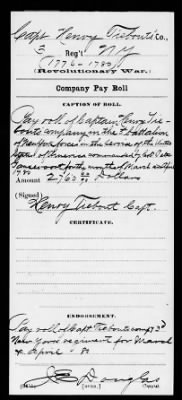 Capt. Henry Tiebout's Co.,
3 Reg't N.Y.
(1776-1780)
(Revolutionary War.)
Company Pay Roll
CAPTION OF ROLL.
Pay roll of Captain Henry Tie-
bouts company in the battalion
of New York forces in the service of the United
States of America commanded by Coll Peter
Gansevoort for the months of March and April
1780
Amount 2763 Dollars
(Signed)
Henry Tiebout Capt.
CERTIFICATE.
ENDORSEMENT.
Pay roll of Capt Tiebouts compy 3d
New York regiment for March
& April 80
J E Douglas
Copyist.